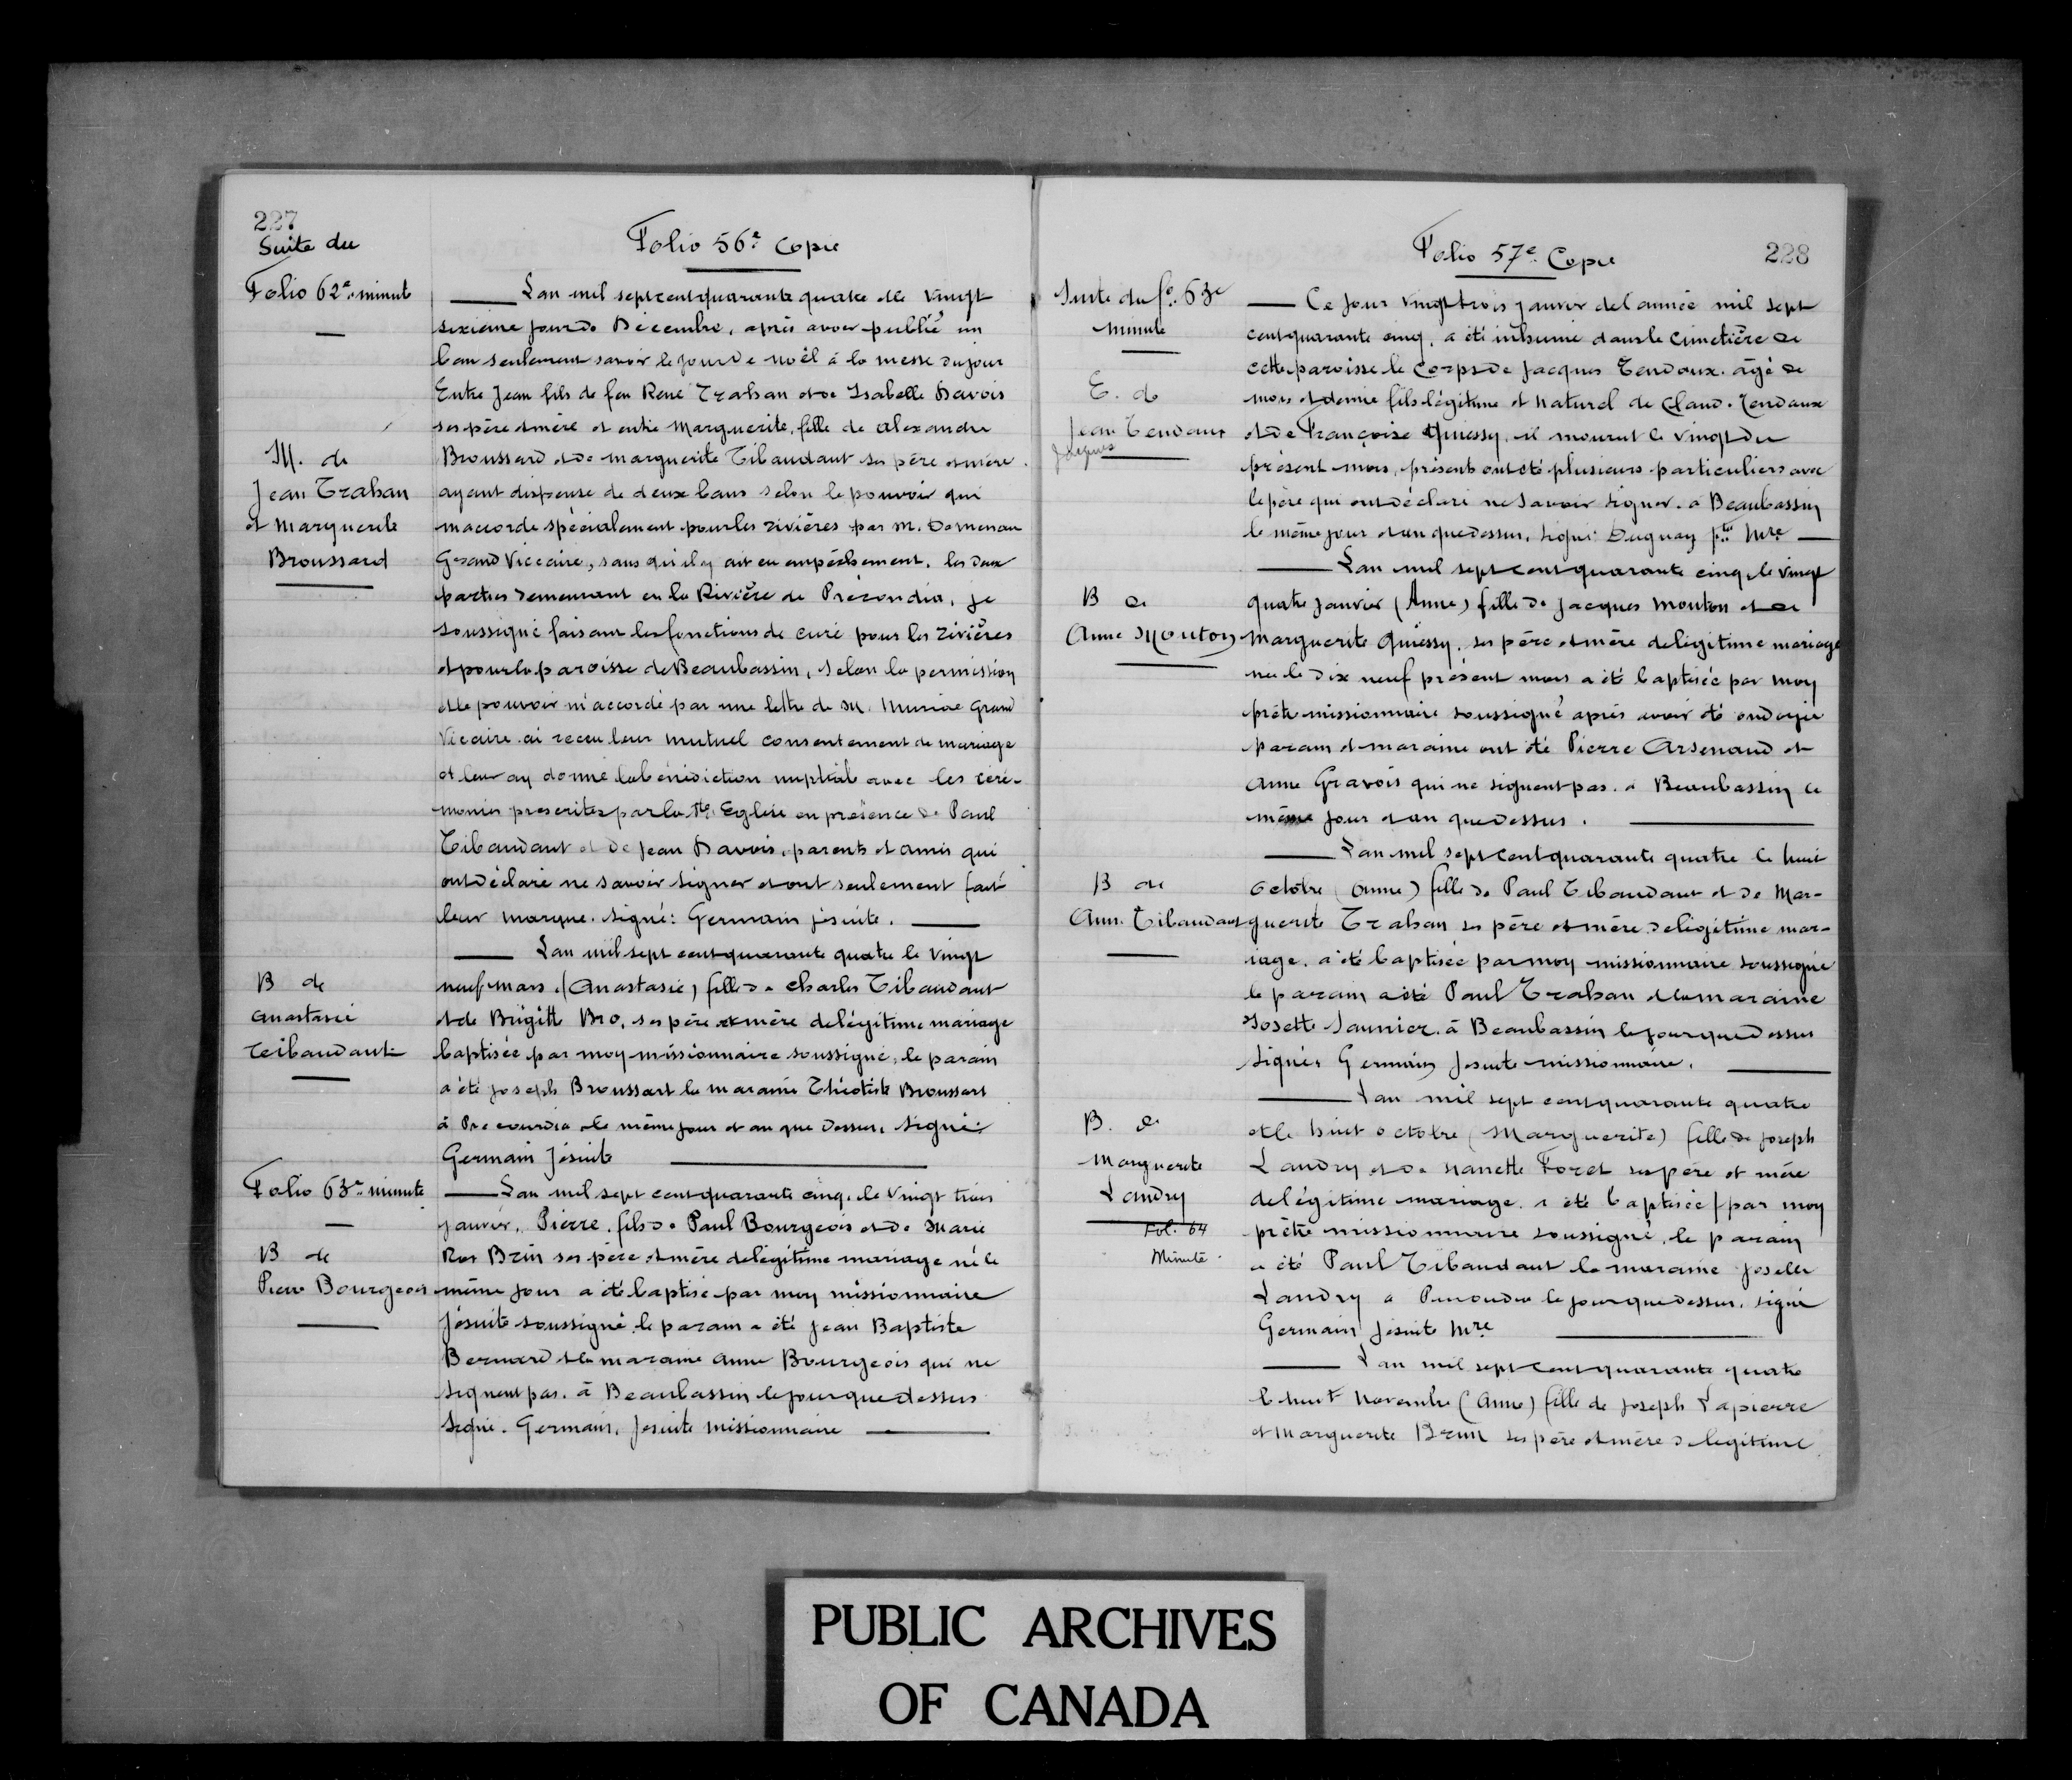 227
Suite du
Folio 62e minute
Folio 56e Copie
L'an mil sept cent quarante quatre et le vingt
sixième jour de Décembre, après avoir publié un
ban seulement savoir le jour de noël à la messe du jour
Entre Jean fils de feu René Trahan et de Isabelle Davois
ses père et mère et entre Marguerite, fille de alexandre
M. de
Jean Trahan
et Marguerite
Broussard
Broussard et de marguerite Tibaudaut ses père et mère.
ayant dispense de deux bans selon le pouvoir qui
m'accorde spécialement pour les rivières par M. Demenau
Grand Viccaire, sans qu'il y ait eu empêchement, les deux
parties demeurant en la Rivière de Précoudia, je
soussigné faisant les fonctions de curé pour les rivières
et pour la paroisse de Beaubassin, selon la permission
et le pouvoir m'accordé par une lettre de M. Grand
Vicaire ai receu leur mutuel consentement de mariage
et leur ay donné la bénédiction nuptiale avec les céré-
monies prescrites par la Ste Eglise en présence de Paul
Tibaudaut et de Jean Davois, parents et amis qui
ont déclaré ne savoir signer et ont seulement fait
leur marque. Signé: Germain jésuite.
L'an mil sept cent quarante quatre le vingt
B de
anastasie
Teibaudaut
neuf mars (Anastasie) fille de charles Tibaudaut
et de Brigitte Bro, ses père et mère de légitime mariage
baptisée par moy missionnaire soussigné, le parain
a été joseph Broussart la maraine Théotiste Broussart
à Precoudia le même jour et an que dessus, signé:
Germain Jésuite
Folio 63e minute
L'an mil sept cent quarante cinq, le vingt trois
janvier, Pierre, fils de Paul Bourgeois et de Marie
B de
Pierre Bourgeois
Ros Brun ses père et mère de légitime mariage né le
même jour a été baptisé par moy missionnaire
Jésuite soussigné le parain a été Jean Baptiste
Bernard et la maraine anne Bourgeois qui ne
signent pas. à Beaubassin le jour que dessus
Signé. Germain, Jésuite missionnaire
Folio 57e Copie
228
Suite du fo. 63e
minute
Ce jour vingt trois janvier de l'année mil sept
cent quarante cinq, a été inhumé dans le Cimetière de
cette paroisse le Corps de Jacques Tendoux. âgé de
E. de
Jean Tendoux
Jacques
mois et demie fils légitime et naturel de Claud. Tendoux
et de Françoise Quiessy, il mourut le vingt du
présent mois, présents ont été plusieurs particuliers avec
le père qui ont déclaré ne savoir signer. à Beaubassin
le même jour et an que dessus, signé: Duguay ptre Mre
L'an mil sept cent quarante cinq, le vingt
B de
Anne Mouton
quatre janvier (Anne) fille de Jacques Mouton et de
Marguerite Quiessy, ses père et mère de légitime mariage
née le dix neuf présent mois a été baptisée par moy
prêtre missionnaire soussigné après avoir été ondoyée
parain et maraine ont été Pierre Arsenaud et
Anne Gravois qui ne signent pas. à Beaubassin le
même jour et an que dessus.
L'an mil sept cent quarante quatre le huit
B de
Ann. Tibaudaut
octobre (anne) fille de Paul Tibaudaut et de Mar-
guerite Trahan ses père et mère de légitime mar-
iage. a été baptisée par moy missionnaire soussigné
le parain a été Paul Trahan et la maraine
Josette Saunier. à Beaubassin le jour que dessus
Signé: Germain Jésuite missionnaire.
L'an mil sept cent quarante quatre
B. de
Marguerite
Landry
et le huit octobre (Marguerite) fille de joseph
Landry et de Nanette Foret ses père et mère
de légitime mariage a été baptisée par moy
Fol. 64
Minute
prêtre missionnaire soussigné, le parain
a été Paul Tibaudaut la maraine Josette
Landry a le jour que dessus. signé
Germain Jésuite Mre
L'an mil sept cent quarante quatre
le huit Novembre (Anne) fille de joseph Lapierre
et Marguerite Brun ses père et mère de légitime
PUBLIC ARCHIVES
OF CANADA